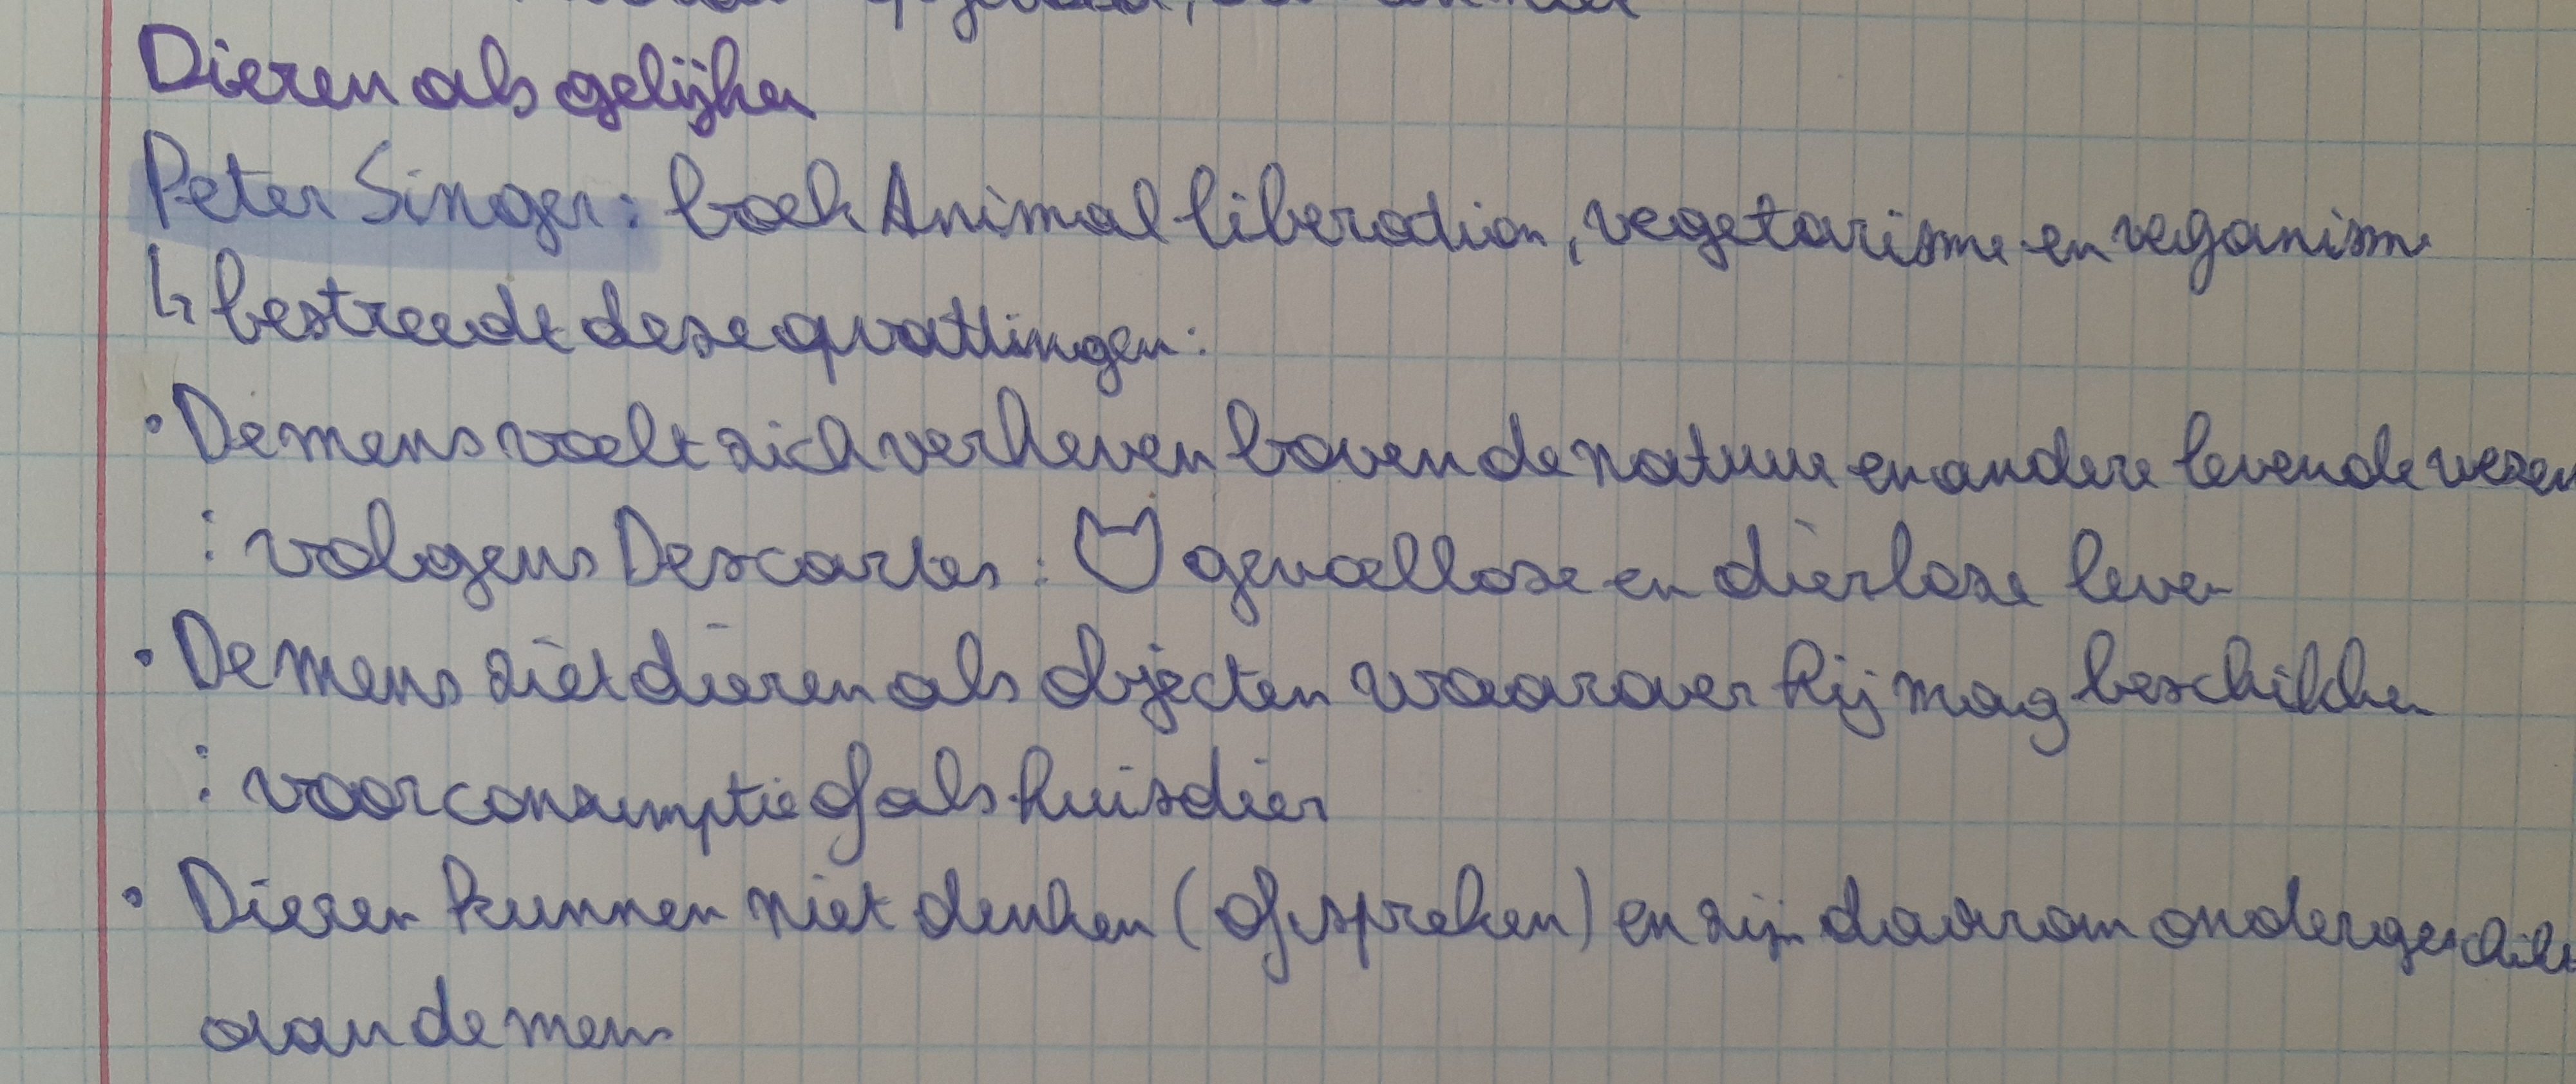 Dieren als gelijken
Peter Singer: boek Animal liberation, vegetarisme en veganisme
↳ bestreedt deze opvattingen:
• De mens voelt zich verheven boven de natuur en andere levende wezen
: volgens Descartes: gevoelloze en dierloze leven
• De mens ziet dieren als objecten waarover hij mag beschikken
: voor consumptie of als huisdier
• Dieren kunnen niet denken (of spreken) en zijn daarom
aan de mens